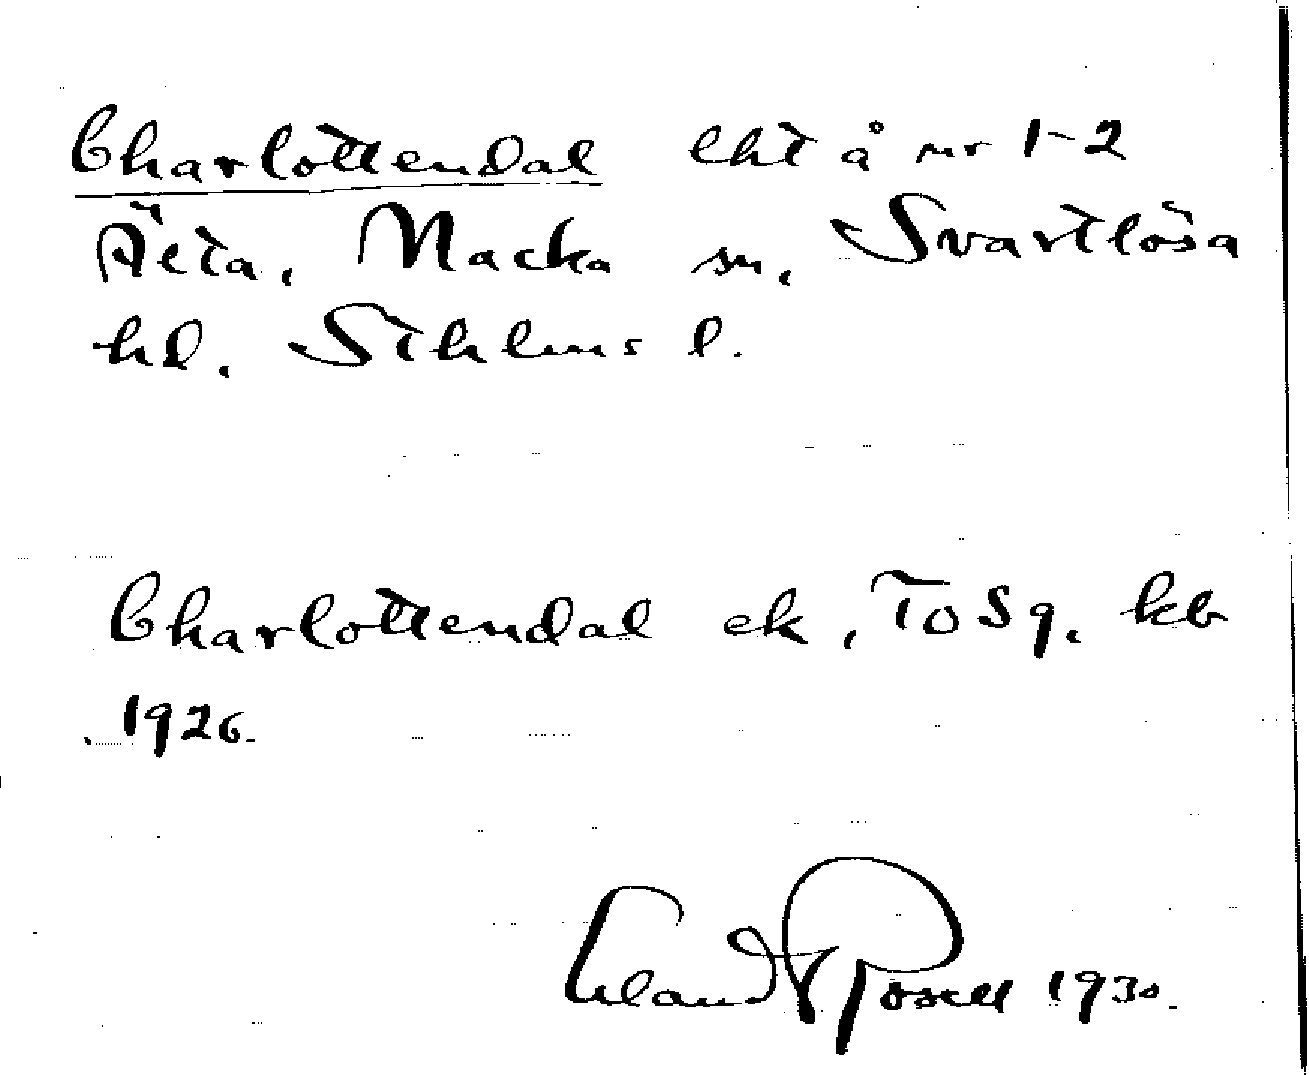 Charlottendal lht å nr 1-2
Älta, Nacka sn, Svartlösa
hd. Sthlms l.
Charlottendal ek, ToSq. kb
1926.
1930.